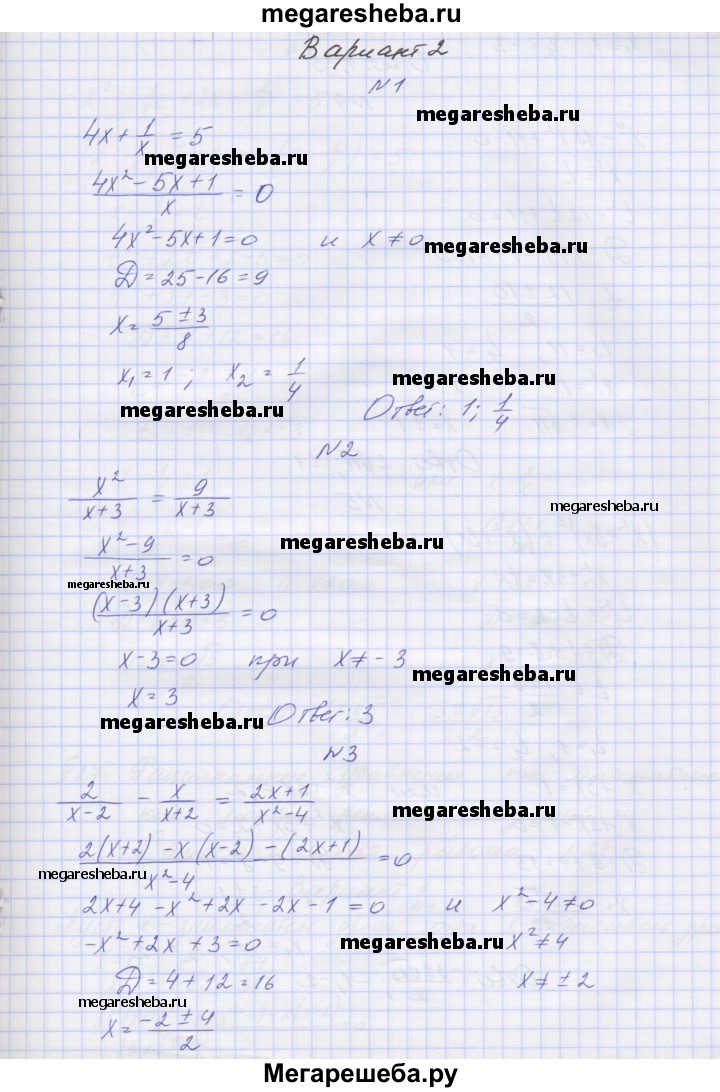 megaresheba.ru
Вариант 2
№1
megaresheba.ru
4x + 1/x = 5
megaresheba.ru
(4x² - 5x + 1)/x = 0
4x² - 5x + 1 = 0 и x ≠ 0
megaresheba.ru
Д = 25 - 16 = 9
x = (5 ± 3)/8
x₁ = 1 ; x₂ = 1/4
megaresheba.ru
megaresheba.ru
Ответ: 1; 1/4
№2
x²/(x+3) = 9/(x+3)
megaresheba.ru
(x² - 9)/(x+3) = 0
megaresheba.ru
megaresheba.ru
((x-3)(x+3))/(x+3) = 0
x - 3 = 0 при x ≠ -3
megaresheba.ru
x = 3
megaresheba.ru
Ответ: 3
№3
2/(x-2) - x/(x+2) = (2x+1)/(x²-4)
megaresheba.ru
(2(x+2) - x(x-2) - (2x+1))/(x²-4) = 0
megaresheba.ru
megaresheba.ru
2x + 4 - x² + 2x - 2x - 1 = 0 и x² - 4 ≠ 0
-x² + 2x + 3 = 0
megaresheba.ru
x² ≠ 4
Д = 4 + 12 = 16
x ≠ ± 2
megaresheba.ru
megaresheba.ru
x = (-2 ± 4)/2
Мегарешеба.ру